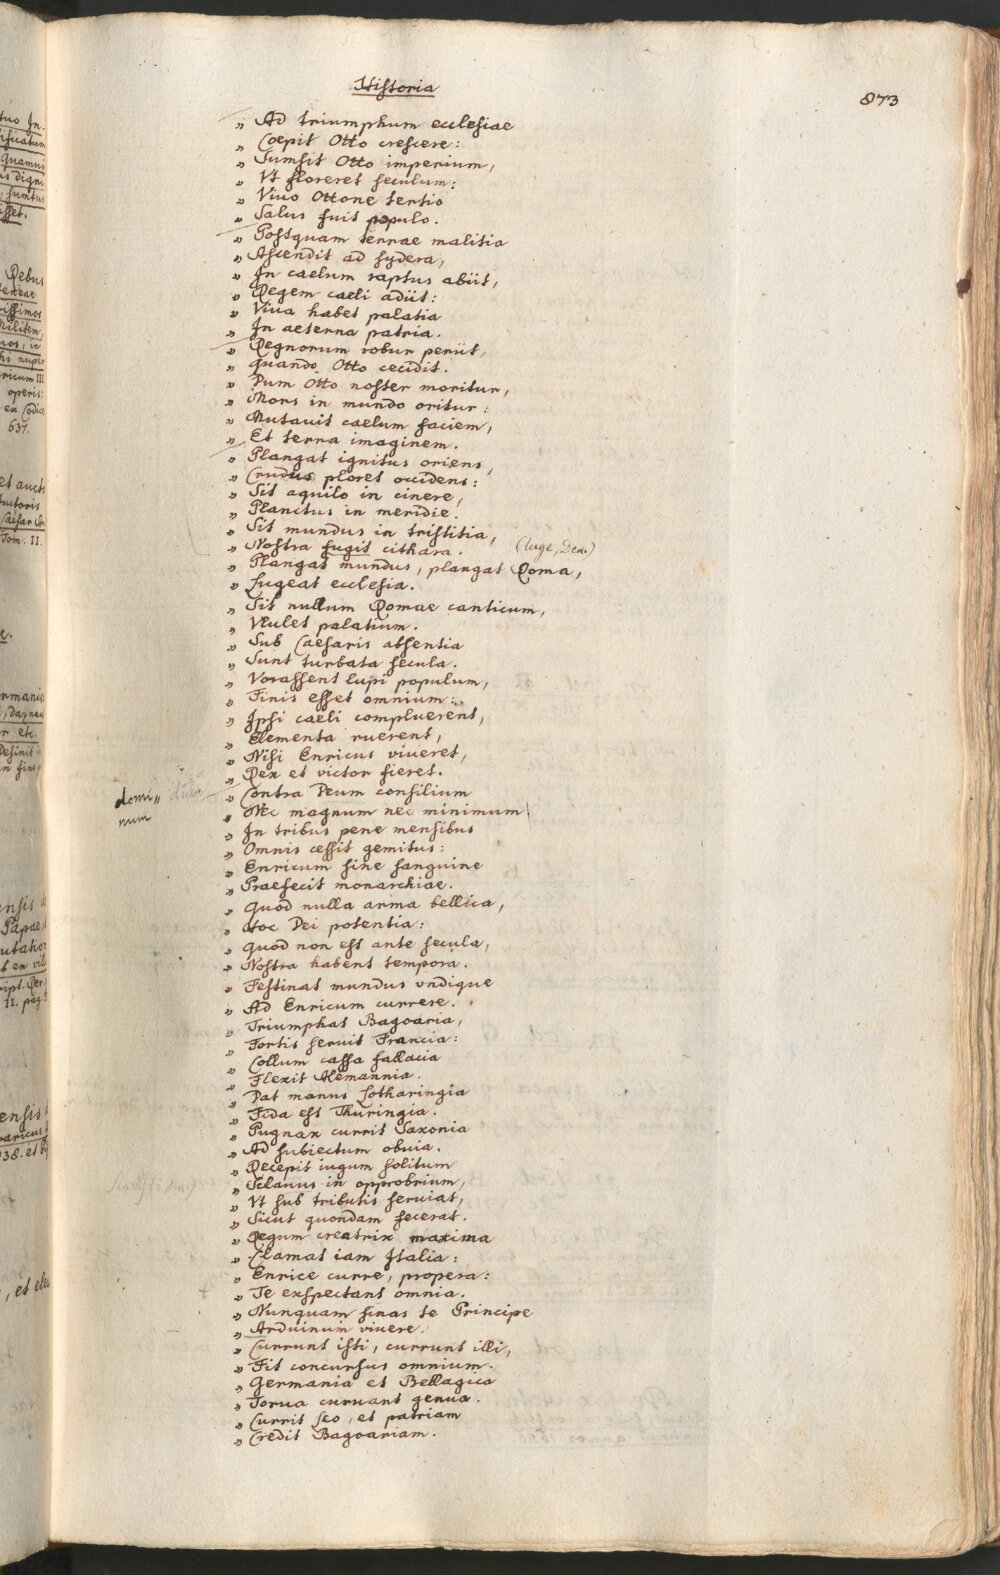 Historia
873
„ Ad triumphum ecclesiae
„ Coepit Otto crescere:
„ Sumsit Otto imperium,
„ Vt floreret seculum:
„ Viuo Ottone tertio
„ Salus fuit populo.
„ Postquam terrae malitia
„ Ascendit ad sydera,
„ In caelum raptus abiit,
„ Regem caeli adiit:
„ Viua habet palatia
„ In aeterna patria.
„ Regnorum robur periit,
„ quando Otto cecidit.
„ Dum Otto noster moritur,
„ Mors in mundo oritur:
„ Mutauit caelum faciem,
„ Et terra imaginem.
„ Plangat ignitus oriens,
„ Crudus ploret occidens:
„ Sit aquilo in cinere,
„ Planctus in meridie.
„ Sit mundus in tristitia,
„ Nostra fugit cithara.
„ Plangat mundus, plangat Roma,
„ Lugeat ecclesia.
„ Sit nullum Romae canticum,
„ Vlulet palatium.
„ Sub Caesaris absentia
„ Sunt turbata secula.
„ Vorassent lupi populum,
„ Finis esset omnium:
„ Ipsi caeli compluerent,
„ Elementa ruerent,
„ Nisi Enricus viueret,
„ Rex et victor fieret.
„ Contra Deum consilium
domi„
num
„ Nec magnum nec minimum
„ In tribus pene mensibus
„ Omnis cessit gemitus:
„ Enricum sine sanguine
„ Praefecit monarchiae.
„ quod nulla arma bellica,
„ Hoc Dei potentia:
„ quod non est ante secula,
„ Nostra habent tempora.
„ Festinat mundus vndique
„ Ad Enricum currere.
„ Triumphat Bagoaria,
„ Fortis seruit Francia:
„ Collum cassa fallacia
„ Flexit Alemannia.
„ Dat manus Lotharingia
„ Fida est Thuringia.
„ Pugnax currit Saxonia
„ Ad subiectum obuia.
„ Recepit iugum solitum
„ Sclauus in opprobrium,
„ Vt sub tributis seruiat,
„ Sicut quondam fecerat.
„ Regum creatrix maxima
„ Clamat iam Italia:
„ Enrice curre, propera:
„ Te exspectant omnia.
„ Nunquam sinas te Principe
„ Arduinum viuere.
„ Currunt isti, currunt illi,
„ Fit concursus omnium.
„ Germania et Bellagica
„ Torua curuant genua.
„ Currit Leo, et patriam
„ Credit Bagoariam.